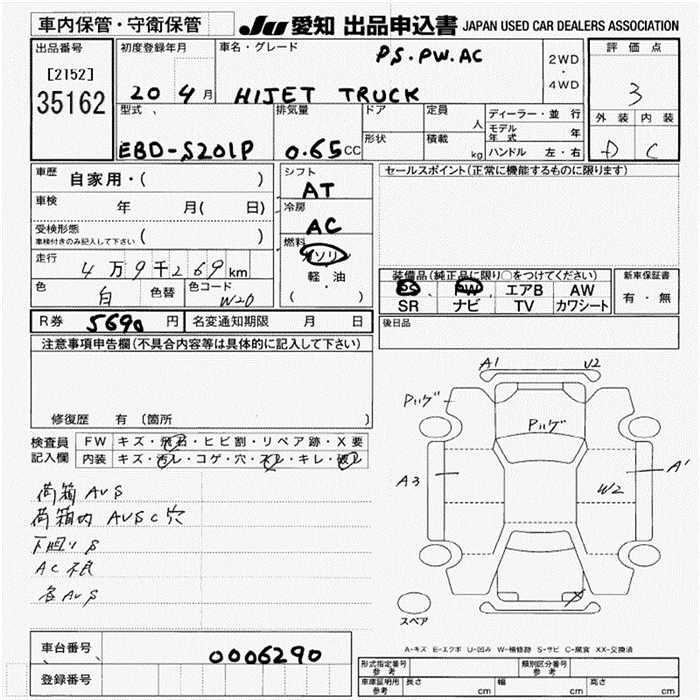 車内保管・守衛保管 JU 愛知 出品申込書 JAPAN USED CAR DEALERS ASSOCIATION
出品番号 [2152] 35162
初度登録年月 20 4月
車名・グレード PS.PW.AC
HIJET TRUCK
2WD・4WD
評価点 3
外装 内装
D C
型式 EBD-S201P
排気量 0.65CC
ドア 定員 人
形状 積載 kg
ディーラー・並行
モデル年式 年
ハンドル 左・右
車歴 自家用・( )
車検 年 月( 日)
受検形態 車検付きのみ記入して下さい ( )
走行 4万9千269km
色 白 色替 色コード W20
シフト AT
冷房 AC
燃料 ガソリン
軽・油
( )
セールスポイント(正常に機能するものに限ります)
装備品(純正品に限り〇をつけてください)
PS PW エアB AW
SR ナビ TV カワシート
新車保証書
有・無
R券 5690円 名変通知期限 月 日
後日品
注意事項申告欄(不具合内容等は具体的に記入して下さい)
修復歴 有 〔箇所 〕
検査員記入欄
FW キズ・飛石・ヒビ割・リペア跡・X要
内装 キズ・汚レ・コゲ・穴・スレ・キレ・破レ
荷箱 AUS
荷箱内 AUSC穴
下廻り S
AC不良
各AUS
A1 U2
Pハゲ
Pハゲ
A3 W2 A1
X
スペア
A-キズ E-エクボ U-凹み W-補修跡 S-サビ C-腐食 XX-交換済
車台番号 0006290
登録番号
形式指定番号 参考 類別区分番号 参考
車庫証明用 参考 長さ cm 幅 cm 高さ cm